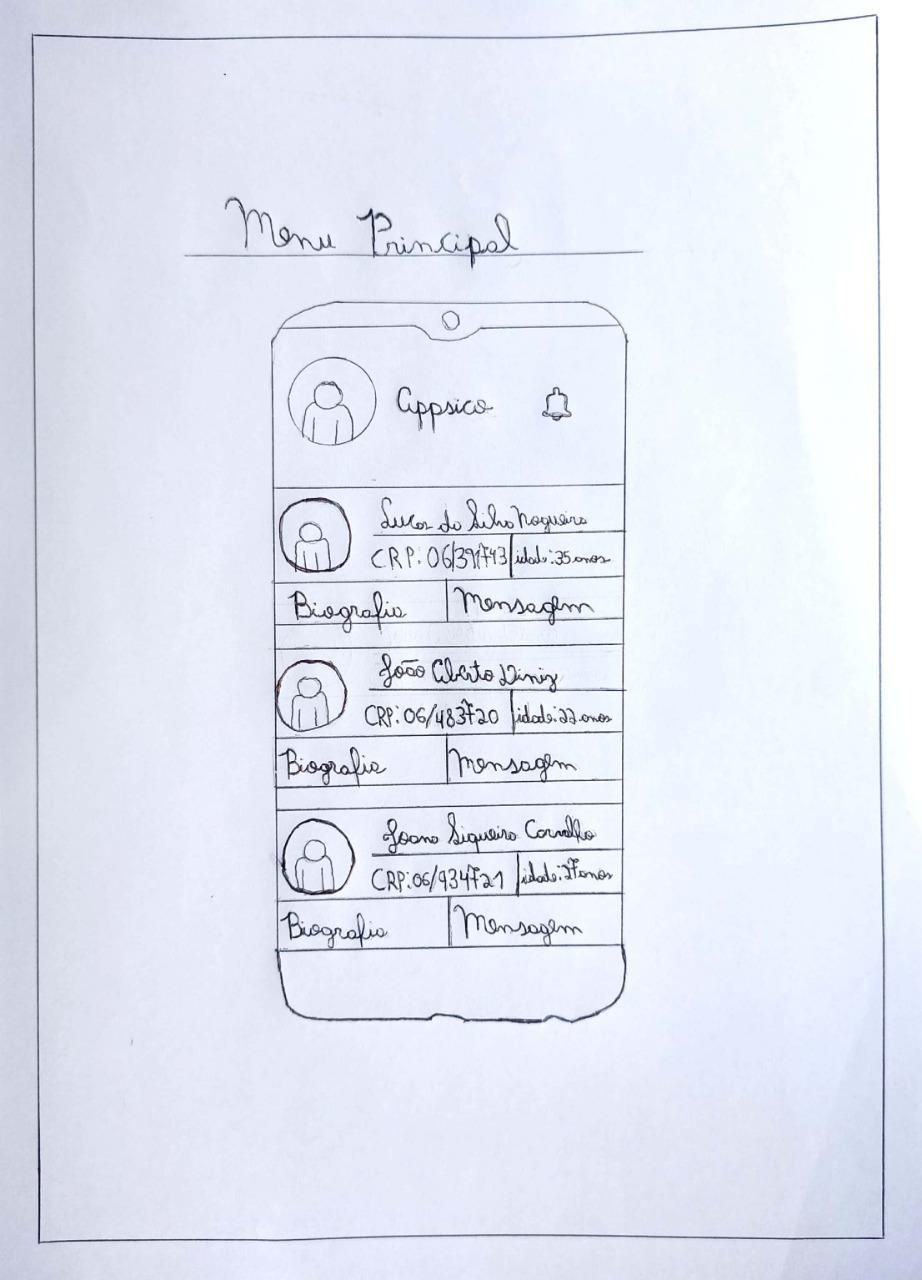 Menu Principal
Appsico
Lucas da Silva Nogueira
CRP: 06/391743 idade: 35 anos
Biografia Mensagem
João Alberto Diniz
CRP: 06/483720 idade: 22 anos
Biografia Mensagem
Joana Siqueira Carvalho
CRP: 06/934721 idade: 27 anos
Biografia Mensagem